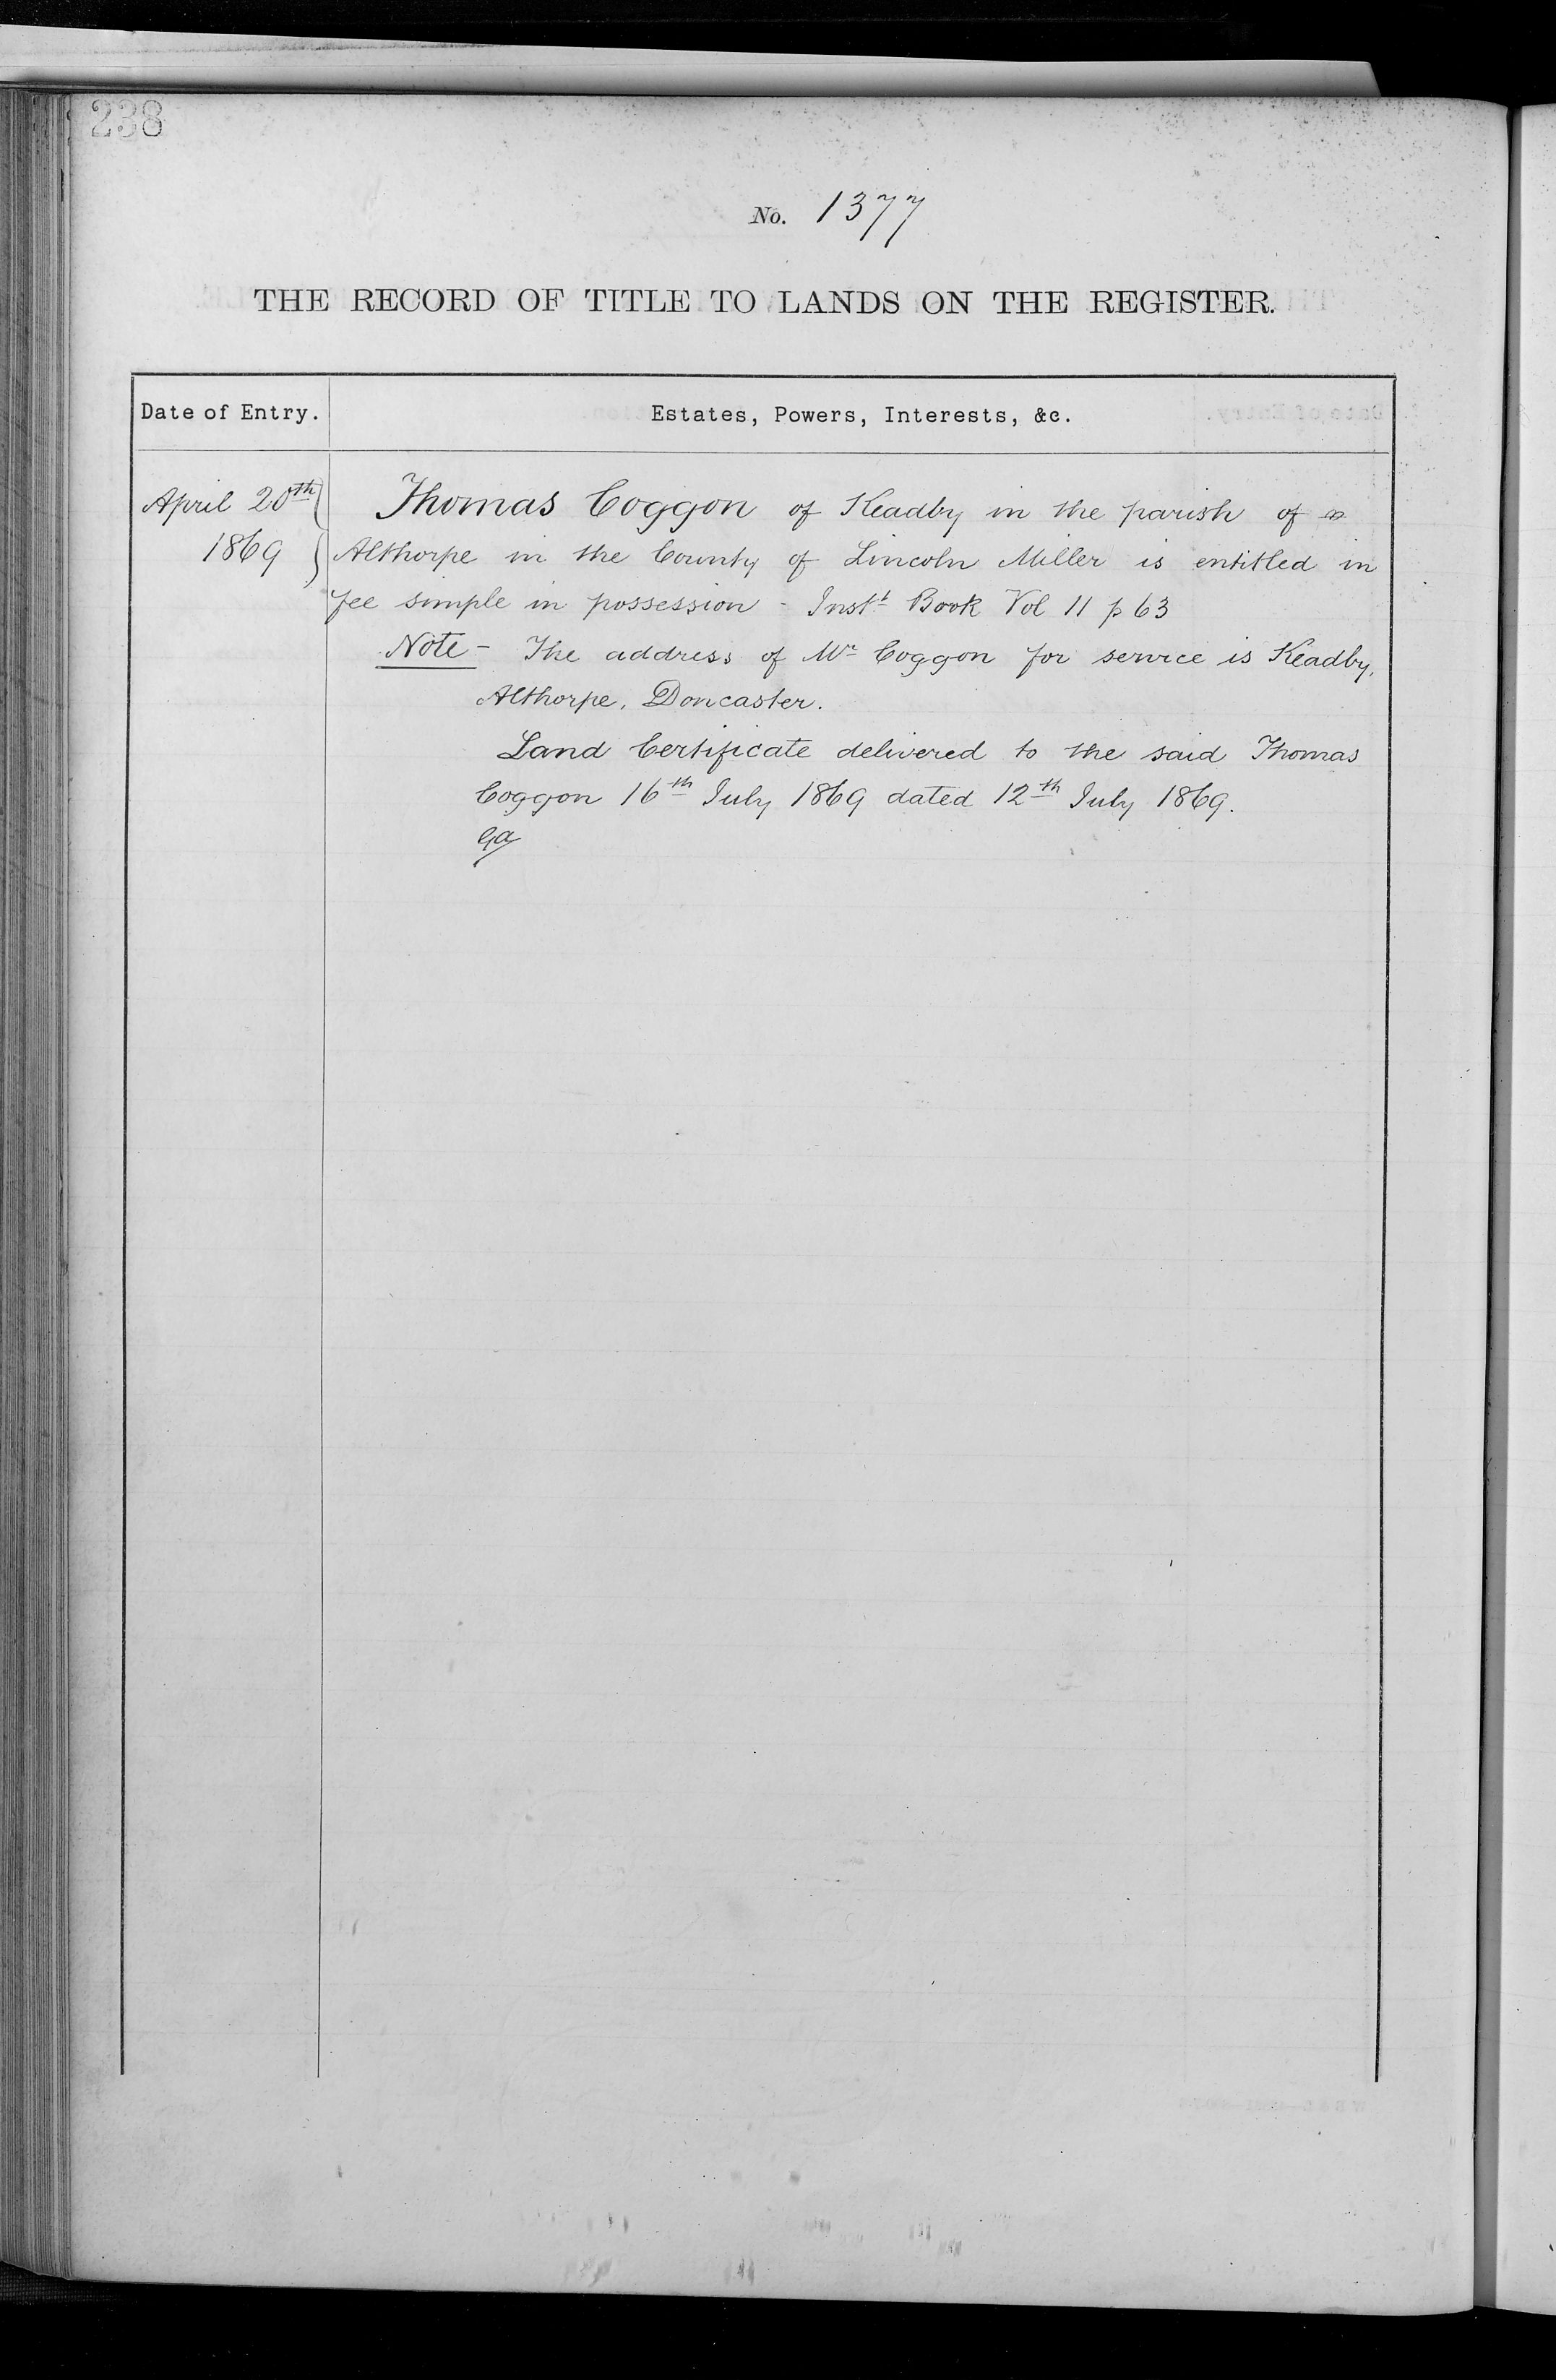 238
No. 1377
THE RECORD OF TITLE TO LANDS ON THE REGISTER.
Date of Entry.
Estates, Powers, Interests, &c.
April 20th
1869
Thomas Coggon of Keadby in the parish of
Althorpe in the County of Lincoln Miller is entitled in
fee simple in possession - Instt Book Vol 11 p 63
Note - The address of Mr Coggon for service is Keadby,
Althorpe, Doncaster.
Land Certificate delivered to the said Thomas
Coggon 16th July 1869 dated 12th July 1869.